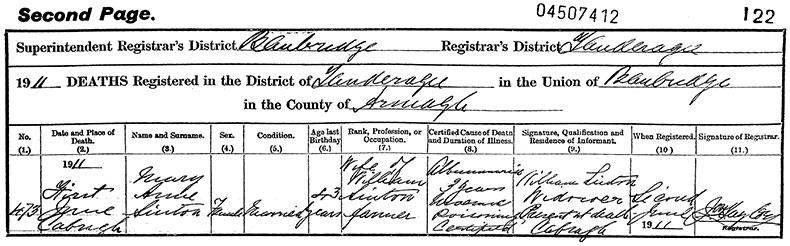 Second Page.
04507412
122
Superintendent Registrar's District Banbridge Registrar's District Tanderagee
1911 DEATHS Registered in the District of Tanderagee in the Union of Banbridge
in the County of Armagh
No. (1.)
Date and Place of Death. (2.)
Name and Surname. (3.)
Sex. (4.)
Condition. (5.)
Age last Birthday (6.)
Rank, Profession, or Occupation. (7.)
Certified Cause of Death and Duration of Illness. (8.)
Signature, Qualification and Residence of Informant. (9.)
When Registered. (10)
Signature of Registrar. (11.)
473
1911
First
June
Cabragh
Mary
Anne
Sinton
Female
Married
43
years
Wife of
William
Sinton
farmer
Albuminuria
Uraemic
Poisoning
Certified
William Sinton
Widower
Present at death
Cabragh
Second
June
1911
Registrar.